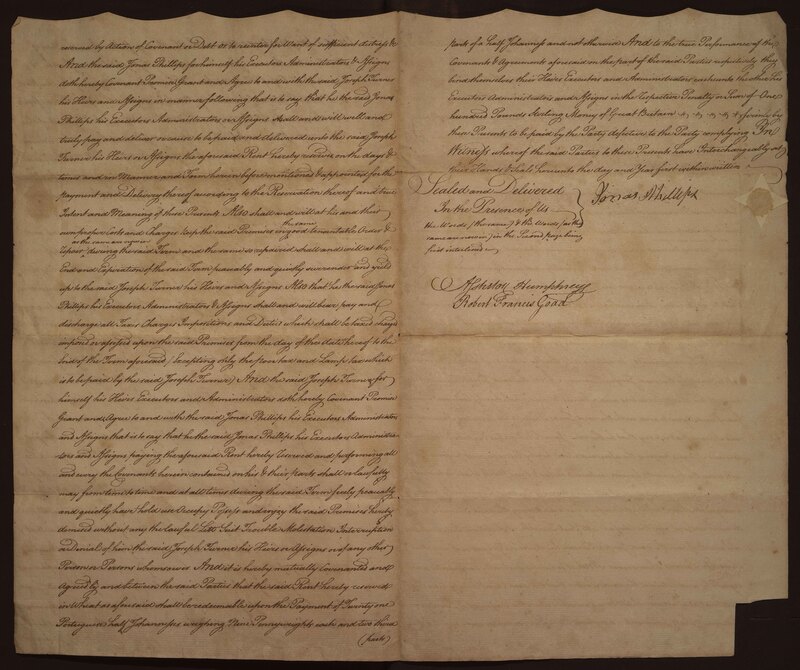 reserved by Action of Covenant or Debt or to reenter for Want of sufficient distress &
And the said Jonas Phillips for himself his Executors Administrators & Assigns
doth hereby Covenant Promise Grant and Agree to and with the said Joseph Turner
his Heirs and Assigns in manner following that is to say that he the said Jonas
Phillips his Executors Administrators or Assigns shall and will well and
truly pay and deliver or cause to be paid and delivered unto the said Joseph
Turner his Heirs or Assigns the aforesaid Rent hereby reserved on the days &
times and in Manner and Form herein before mentioned & appointed for the
payment and Delivery thereof according to the Reservation thereof and true
Intent and Meaning of these Presents Also shall and will at his and their
own proper Costs and Charges keep the said Premises in good tenantable Order &
the same
Repair during the said Term and the same so repaired shall and will at the
as the same are now in
End and Expiration of the said Term peaceably and quietly surrender and yield
up to the said Joseph Turner his Heirs and Assigns Also that he the said Jonas
Phillips his Executors Administrators & Assigns shall and will bear pay and
discharge all Taxes Charges Impositions and Duties which shall be taxed charged
imposed or assessed upon the said Premises from the day of the date hereof to the
End of the Term aforesaid (Excepting only the poor tax and Lamp tax which
is to be paid by the said Joseph Turner) And the said Joseph Turner for
himself his Heirs Executors and Administrators doth hereby Covenant Promise
Grant and Agree to and with the said Jonas Phillips his Executors Administrators
and Assigns that is to say that he the said Jonas Phillips his Executors Administra-
tors and Assigns paying the aforesaid Rent hereby reserved and performing all
and every the Covenants herein contained on his & their parts shall or lawfully
may from time to time and at all times during the said Term freely peaceably
and quietly have hold use Occupy Possess and enjoy the said Premises hereby
demised without any the lawful Lett Suit Trouble Molestation Interruption
or Denial of him the said Joseph Turner his Heirs or Assigns or of any other
Person or Persons whomsoever And it is hereby mutually Covenanted and
Agreed by and between the said Parties that the said Rent hereby reserved
in Wheat as aforesaid shall be redeemable upon the Payment of Twenty one
Portuguese half Johannes's weighing Nine Pennyweights each and two third
(parts)
parts of a half Johannes and not otherwise And to the true Performance of the
Covenants & Agreements aforesaid on the part of the said Parties respectively they
bind themselves their Heirs Executors and Administrators each unto the other his
Executors Administrators and Assigns in the Penalty or Sum of One
hundred Pounds Sterling Money of Great Britain firmly by
these Presents to be paid by the Party defective to the Party complying In
Witness whereof the said Parties to these Presents have Interchangeably set
their Hands & Seals hereunto the day and Year first within written
Sealed and Delivered
In the Presence of Us
the Words (the same) & the Words (as the
same are now in) in the Second page being
first interlined
Jonas Phillips
Asheton Humphreys
Robert Francis Goad